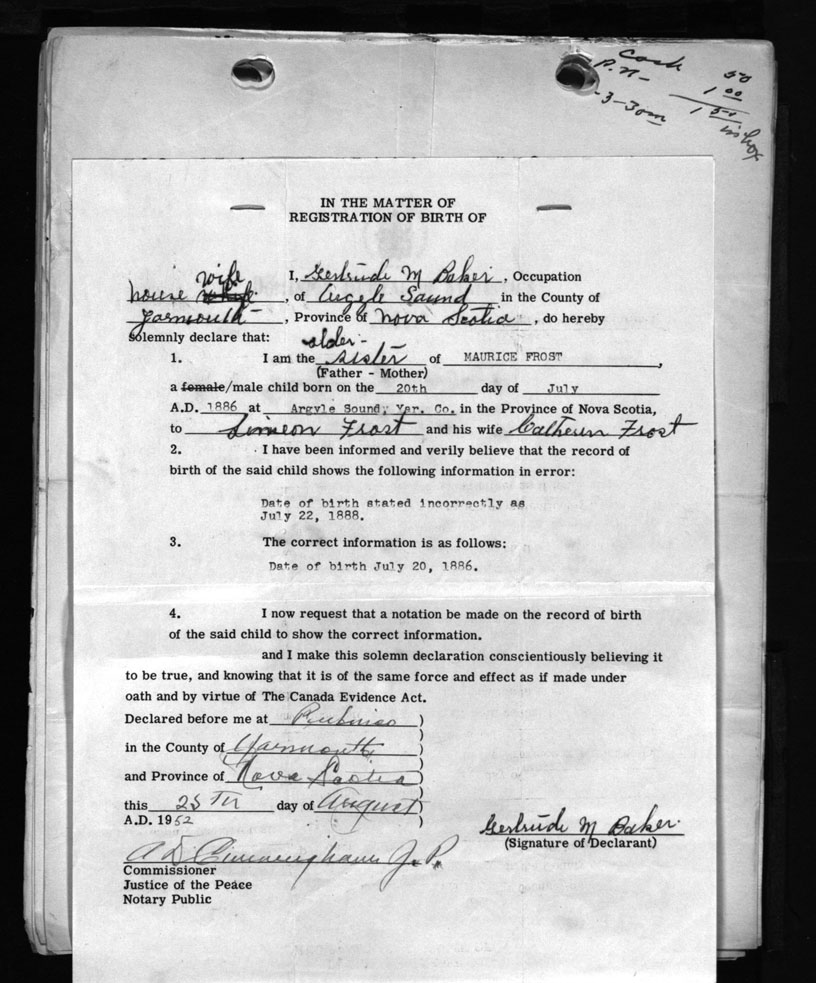 Cash 50
P.N- 1 00
-3-30m 1 50
in box
IN THE MATTER OF
REGISTRATION OF BIRTH OF
wife
I, Gertrude M Baker, Occupation
house , of Argyle Sound in the County of
Yarmouth, Province of Nova Scotia, do hereby
Solemnly declare that:
older-
1. I am the sister of MAURICE FROST,
(Father - Mother)
a female/male child born on the 20th day of July
A.D. 1886 at Argyle Sound, Yar. Co. in the Province of Nova Scotia,
to Simeon Frost and his wife Calhoun Frost
2. I have been informed and verily believe that the record of
birth of the said child shows the following information in error:
Date of birth stated incorrectly as
July 22, 1888.
3. The correct information is as follows:
Date of birth July 20, 1886.
4. I now request that a notation be made on the record of birth
of the said child to show the correct information.
and I make this solemn declaration conscientiously believing it
to be true, and knowing that it is of the same force and effect as if made under
oath and by virtue of The Canada Evidence Act.
Declared before me at )
in the County of Yarmouth )
and Province of Nova Scotia )
this 25TH day of August )
A.D. 1952 )
Gertrude M Baker.
(Signature of Declarant)
A D Cunningham J.P.
Commissioner
Justice of the Peace
Notary Public